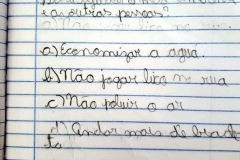 e a outras pessoas?
a) Economizar a agua.
b) Não jogar lixo na rua
c) Não poluir o ar
d) Andar mais de bicicle
ta